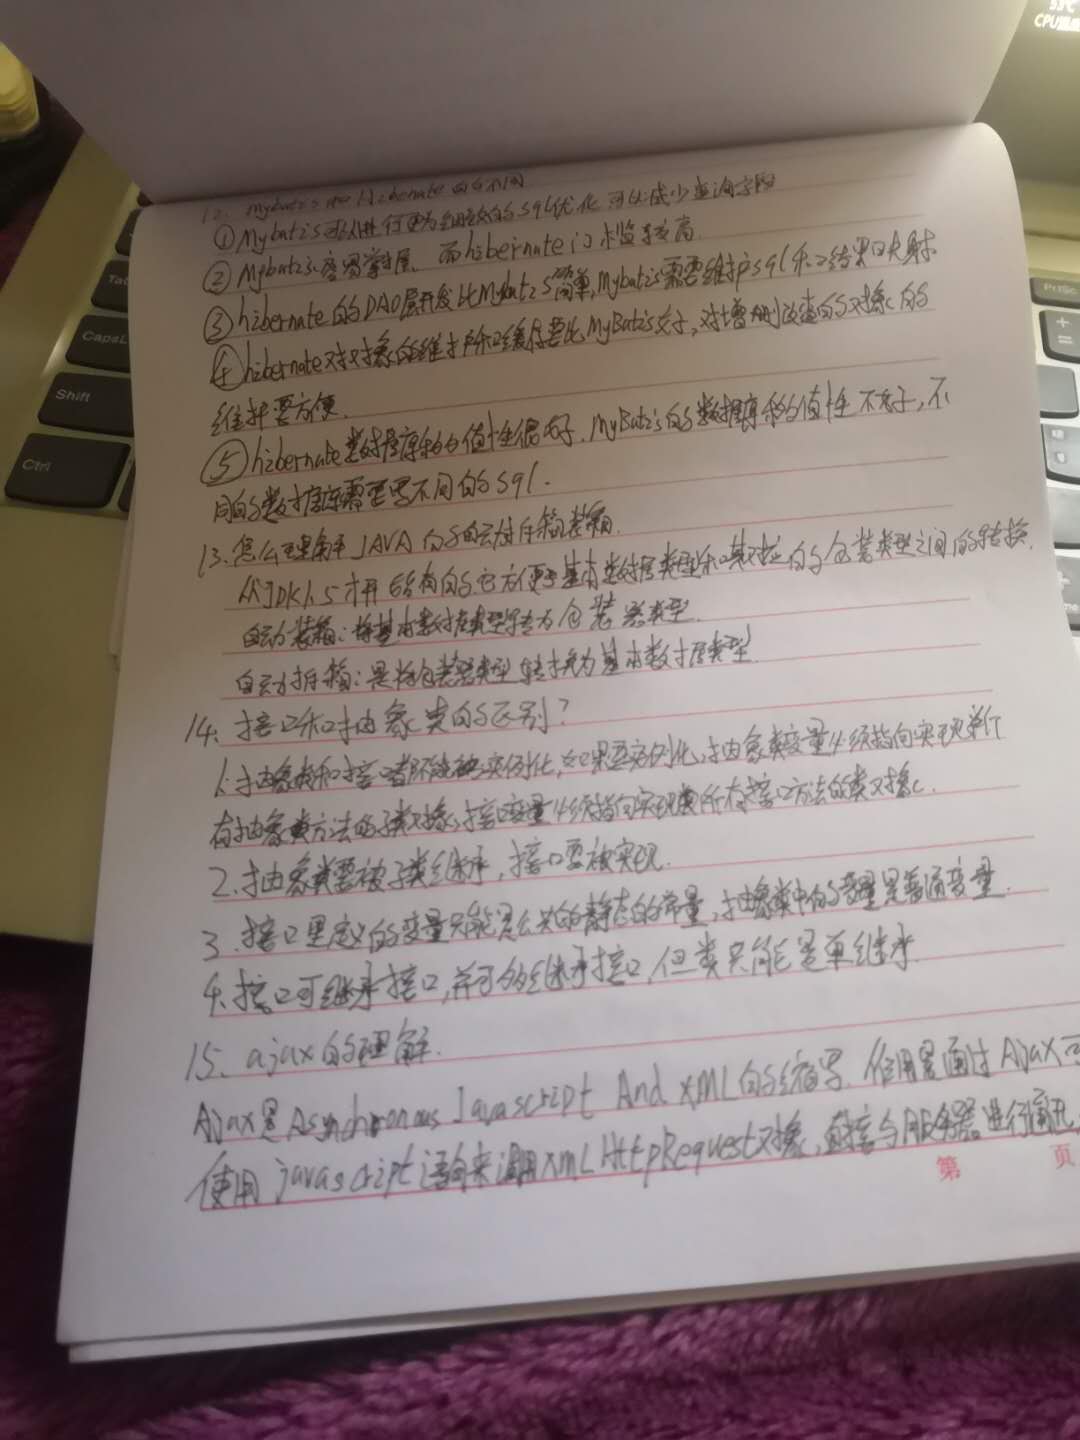 12. Mybatis和Hibernate的不同
①Mybatis可以进行更为细致的sql优化 可以减少查询字段
②Mybatis容易掌握、而hibernate门槛较高.
③hibernate的DAO层开发比Mybatis简单,Mybatis需要维护sql和结果映射
④hibernate对对象的维护和缓存要比MyBatis好,对增删改查的对象的
维护要方便.
⑤hibernate数据库移植性很好.MyBatis的数据库移植性不好,不
同的数据库需要写不同的sql.
13.怎么理解JAVA的自动拆箱装箱.
从JDK1.5才开始有的,它方便了基本数据类型和其对应的包装类型之间的转换.
自动装箱:将基本数据类型转为包装器类型.
自动拆箱:是将包装器类型转换为基本数据类型
14.接口和抽象类的区别?
1.抽象类和接口都不能被实例化,如果要实例化,抽象类变量必须指向实现所有抽象类方法的子类对象,
接口变量必须指向实现类所有接口方法的类对象.
2.抽象类要被子类继承,接口要被实现.
3.接口里定义的变量只能是公共的静态的常量,抽象类中的变量是普通变量.
4.接口可继承接口,并可多继承接口,但类只能是单继承.
15.ajax的理解.
Ajax是Asynchronous Javascript And XML的缩写.作用是通过AJaX可
使用javascript语句来调用XMLHttpRequest对象,直接与服务器进行通讯
第 页
PrtSc
CapsL
Shift
Ctrl